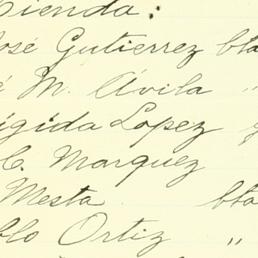 cienda:
José Gutierrez bta
é M. Ávila "
igida Lopez
C. Marquez
Mesta bta
blo Ortiz "